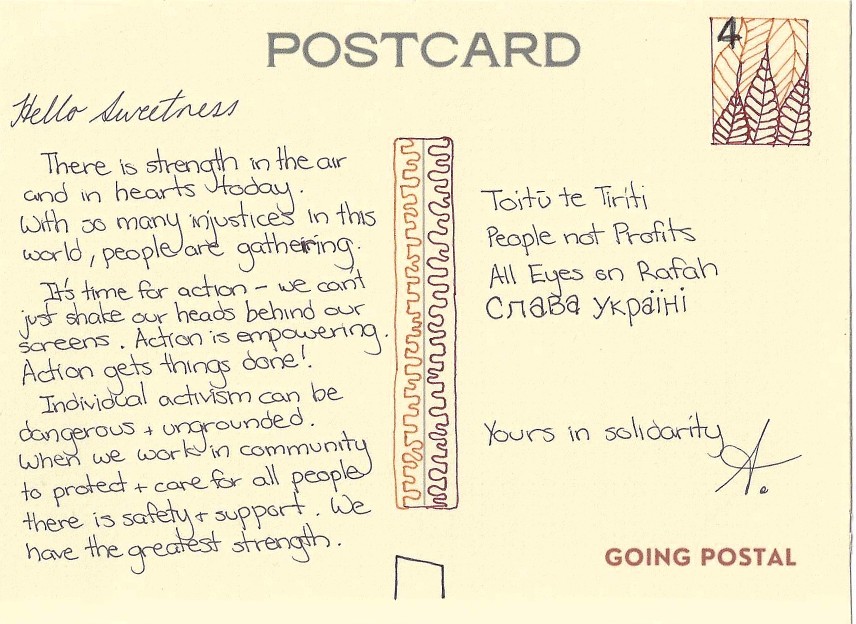 POSTCARD
4
Hello Sweetness
There is strength in the air
and in hearts today.
With so many injustices in this
world, people are gathering.
It's time for action - we can't
just shake our heads behind our
screens. Action is empowering.
Action gets things done!
Individual activism can be
dangerous + ungrounded.
When we work in community
to protect + care for all people
there is safety + support. We
have the greatest strength.
Toitū te Tiriti
People not Profits
All Eyes on Rafah
Слава Україні
Yours in solidarity
A.
GOING POSTAL